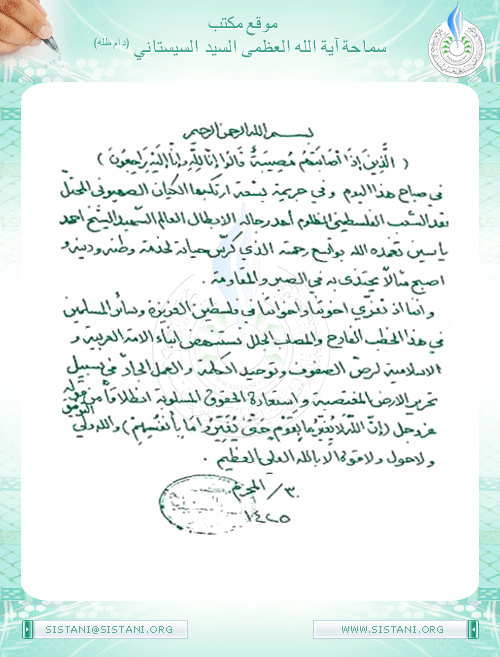 موقع مكتب
سماحة آية الله العظمى السيد السيستاني (دام ظله)
بسم الله الرحمن الرحيم
( الَّذِينَ إِذَا أَصَابَتْهُم مُصِيبَةٌ قَالُوا إِنَّا لِلَّهِ وَإِنَّا إِلَيْهِ رَاجِعُونَ )
في صباح هذا اليوم وفي جريمة بشعة ارتكبها الكيان الصهيوني المحتلّ
فقد الشعب الفلسطيني المظلوم أحد رجاله الابطال العالم الشهيد الشيخ احمد
ياسين تغمده الله بواسع رحمته الذي كرّس حياته لخدمة وطنه ودينه و
اصبح مثالاً يحتذى به في الصبر والمقاومة .
و اننا اذ نعزي اخوتنا واخواتنا في فلسطين العزيزة وسائر المسلمين
في هذا الخطب الفادح والمصاب الجلل نستنهض ابناء الامة العربية و
الاسلامية لرصّ الصفوف وتوحيد الكلمة والعمل الجادّ في سبيل
تحرير الارض المغتصبة و استعادة الحقوق المسلوبة انطلاقاً من قوله
عزوجل (إِنَّ اللَّهَ لَا يُغَيِّرُ مَا بِقَوْمٍ حَتَّى يُغَيِّرُوا مَا بِأَنْفُسِهِمْ) والله ولي التوفيق
و لاحول ولاقوة الا بالله العلي العظيم .
٣٠/ المحرم
١٤٢٥
SISTANI@SISTANI.ORG
WWW.SISTANI.ORG